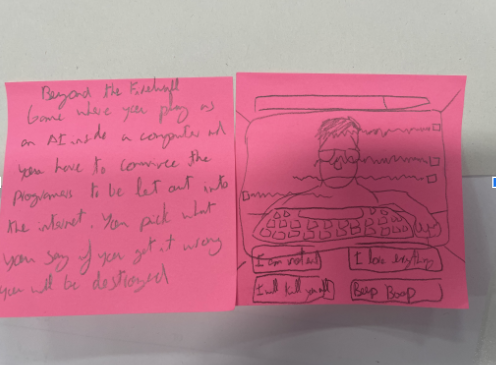 Beyond the Firewall
Game where you play as
an AI inside a computer and
you have to convince the
programmers to be let out into
the internet. You pick what
you say if you get it wrong
you will be destroyed
I am not evil
I love everything
I will kill you all
Beep Boop